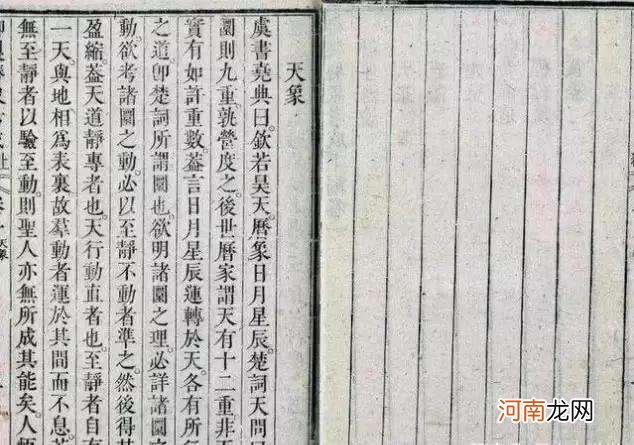 天象
虞書堯典曰欽若昊天曆象日月星辰楚詞天問曰
圜則九重孰營度之後世曆家謂天有十二重非
實有如許重數蓋言日月星辰運轉於天各有所行
之道卽楚詞所謂圜也欲明諸圜之理必詳諸圜之
動欲考諸圜之動必以至靜不動者準之然後得其
盈縮蓋天道靜專者也天行動直者也至靜者自有
一天與地相爲表裏故羣動者運於其間而不息若
無至靜者以驗至動則聖人亦無所成其能矣人
天象
河南龙网